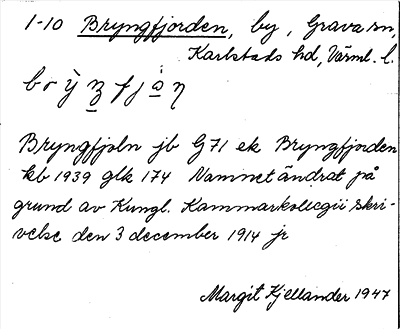 1-10 Bryngfjorden, by, Grava sn,
Karlstads hd, Värml. l.
Bryngfjoln jb G71 ek Bryngfjorden
kb 1939 glk 174 Namnet ändrat på
grund av Kungl. Kammarkollegii skri-
velse den 3 december 1914 jr
Margit Kjellander 1947